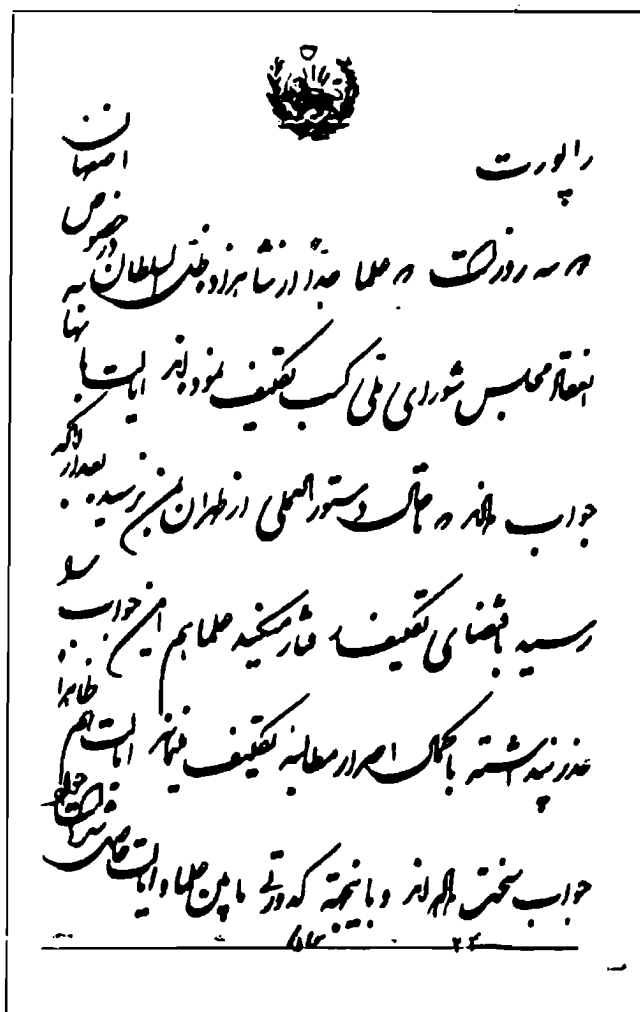 راپورت اصفهان
سه روز است علما جداً از شاهزاده ظل السلطان در خصوص
انعقاد مجلس شورای ملی کسب تکلیف نموده‌اند ایالت به آنها
جواب داده‌اند تا حال دستورالعملی از طهران بمن نرسیده بعد از آنکه
رسید باقتضای تکلیف رفتار میکنید علما هم این جواب را
عذر پنداشته با کمال اصرار مطالبه تکلیف مینمایند ایالت هم ظاهراً
جواب سخت داده‌اند و باینجهة کدورتی مابین علما و ایالت حاصل شده است